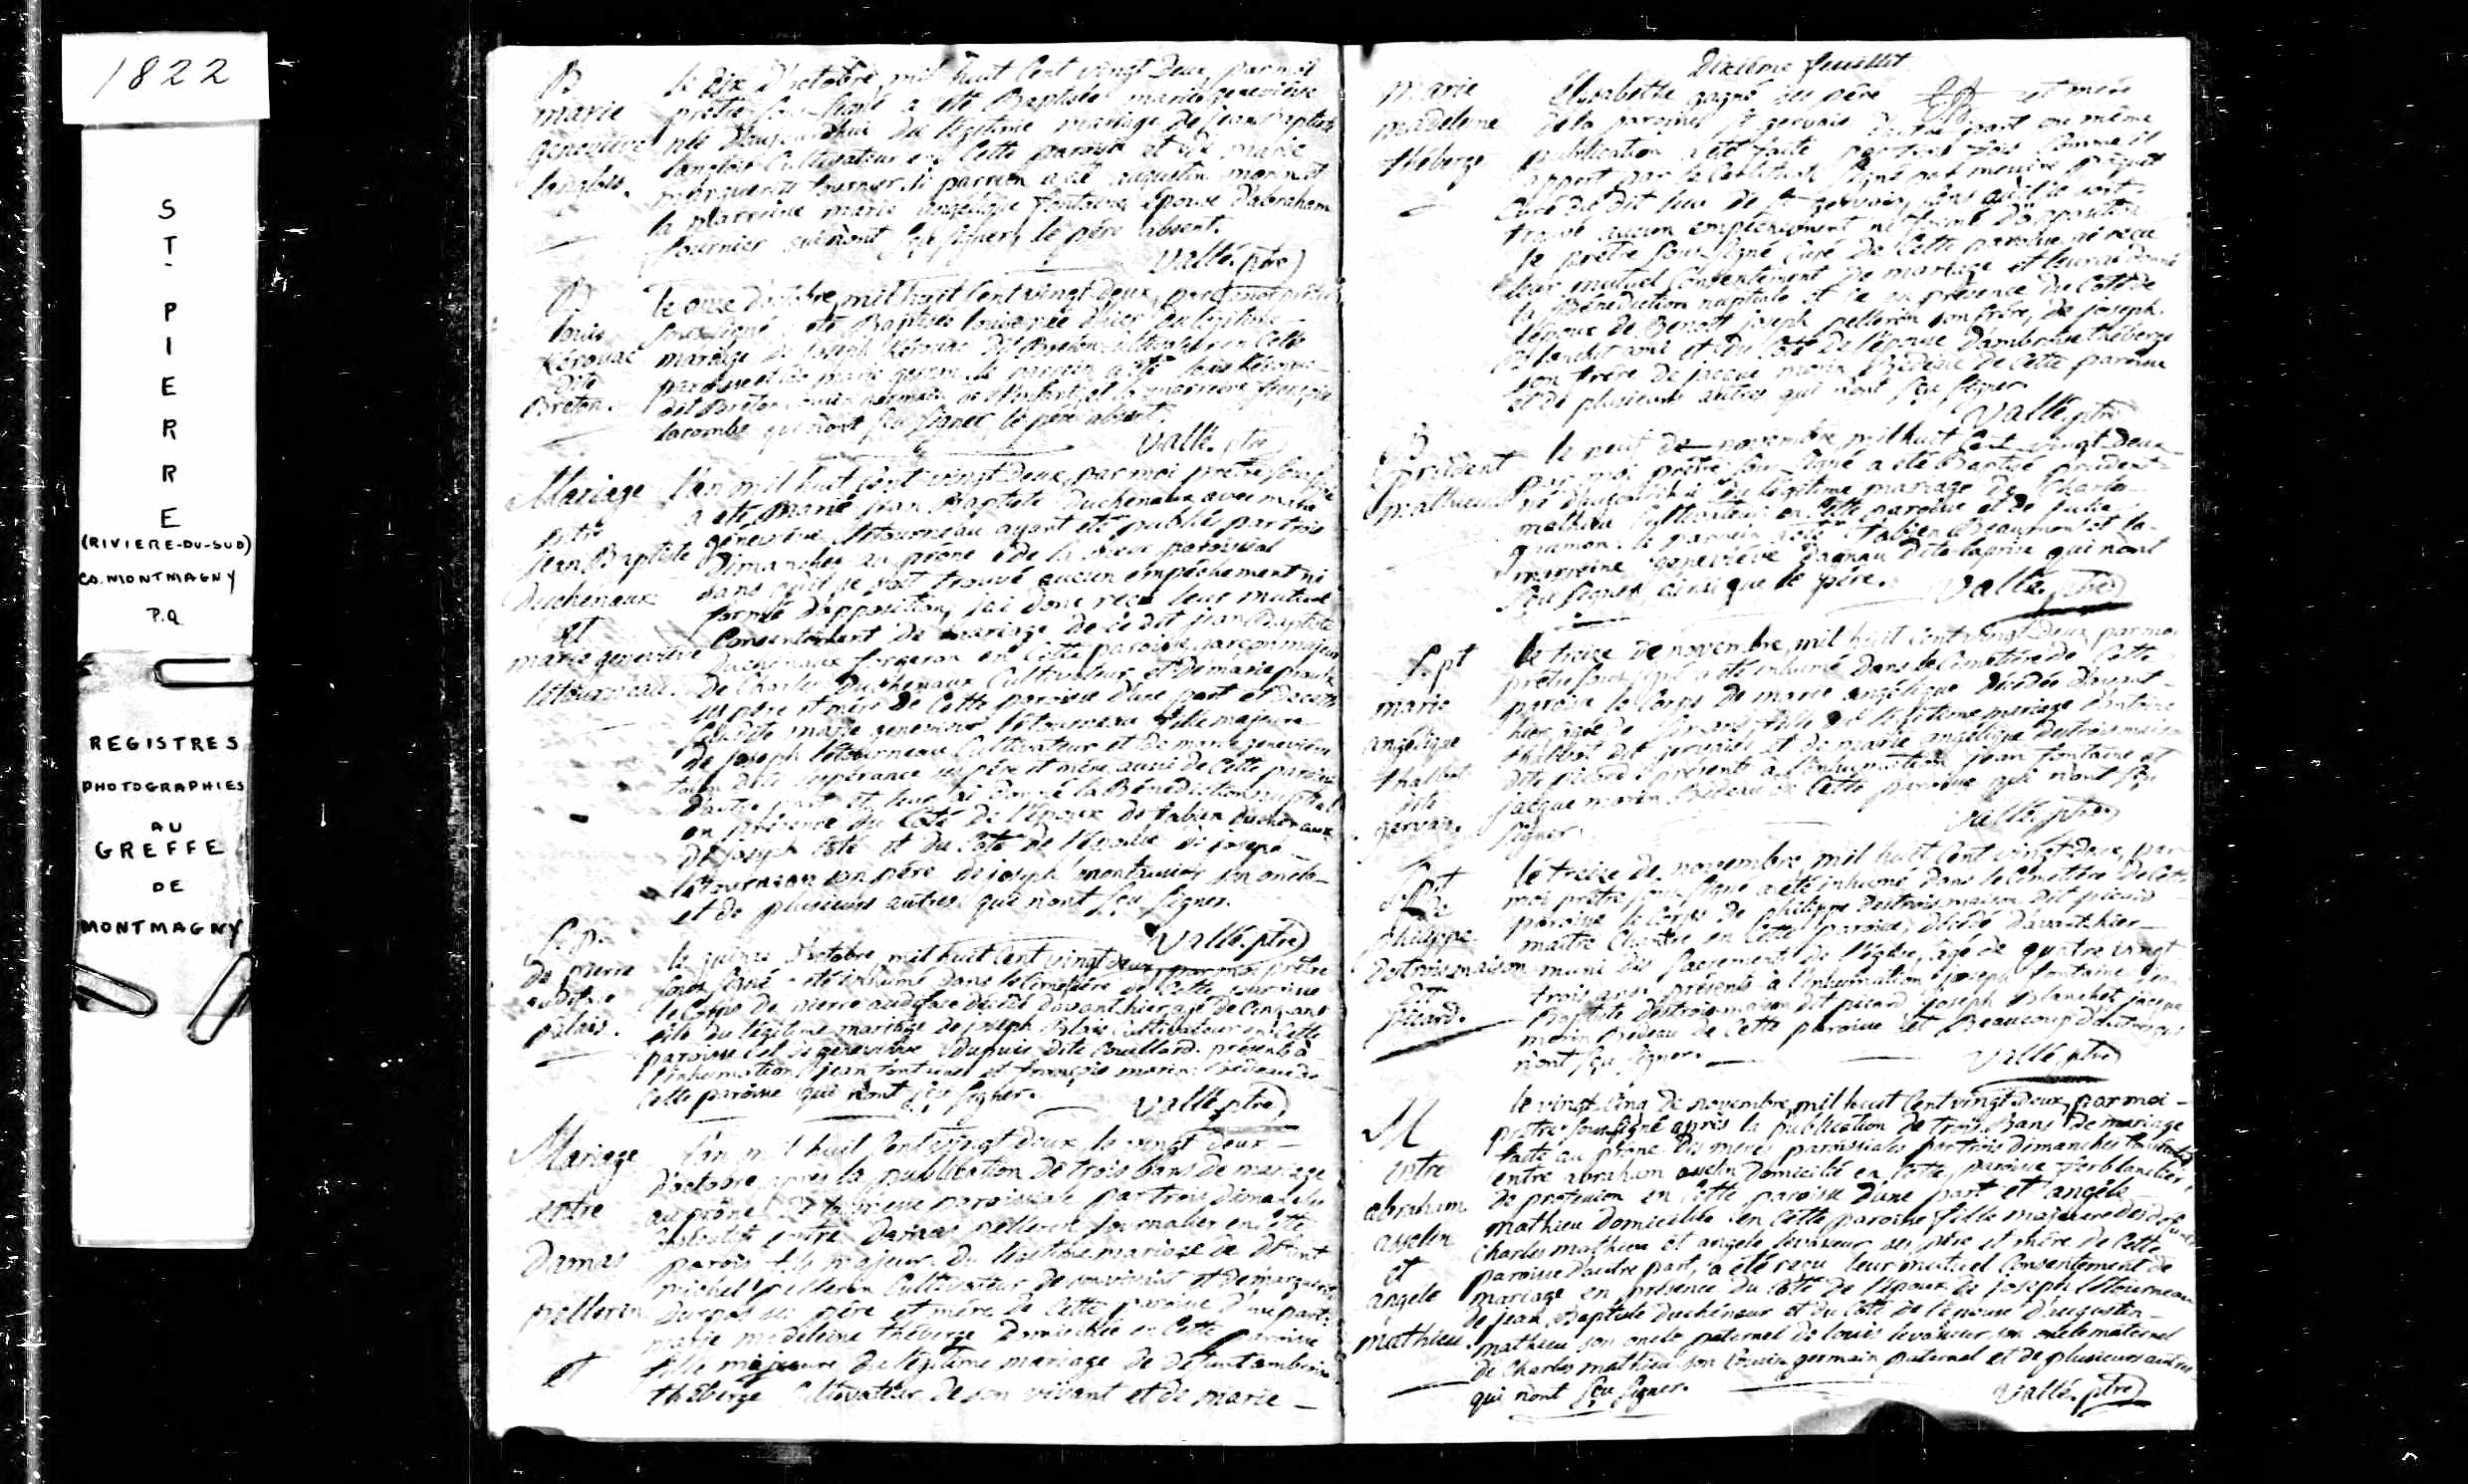 1822
ST-PIERRE
(RIVIERE-DU-SUD)
CO. MONTMAGNY
P.Q
REGISTRES
PHOTOGRAPHIES
AU
GREFFE
DE
MONTMAGNY
B
marie
geneviève
langlois.
le dix d'octobre, mil huit Cent vingt Deux, par moi
prêtre Sous-signé a été Baptisée marie geneviève
née d'aujourd'hui du légitime mariage de jean Baptiste
langlois Cultivateur en Cette paroisse et de marie
marguerite fournier. le parrein a été augustin morin et
la marreine marie angelique fontaine Epouse d'abraham
fournier qui n'ont sçu signer, le père absent.
Vallé. ptre
B
louis
Kérouac
dite
Breton.
le onze d'octobre, mil huit Cent vingt Deux, par moi prêtre
Sous-signé a été Baptisée née d'hier du légitime
mariage de joseph Kérouac dit Breton cultivateur en Cette
paroisse et de marie le parrein a été louis Kérouac
dit Breton germain de l'enfant, et la marreine
lacombe qui n'ont sçu signer, le père absent.
Vallé. ptre
Mariage
entre
jean Baptiste
Duchenaux
et
marie geneviève
létourneau.
l'an mil huit Cent vingt Deux, par moi prêtre sous-signé
a été marié jean Baptiste Duchenaux avec marie
geneviève létourneau ayant été publiés par trois
Dimanches au prône de la messe paroissial
sans qu'il se soit trouvé aucun empêchement ni
formé d'opposition, j'ai donc reçu leur mutuel
Consentement de mariage de ce dit jean Baptiste
Duchenaux forgeron en Cette paroisse, garçon majeur
De Charles Duchenaux Cultivateur et De marie proulx
ses père et mère de Cette paroisse d'une part et de cette
susdite marie geneviève létourneau fille majeure
de joseph létourneau Cultivateur et de marie geneviève
dite lespérance ses père et mère aussi de Cette paroisse
d'autre part et leur ai donné la Bénédiction nuptiale
en présence du Coté de l'époux de fabien duchenaux
de joseph Coté et du Coté de l'épouse de joseph
létourneau son père de joseph son oncle
et de plusieurs autres qui n'ont sçu signer.
Vallé. ptre
S.p.
De pierre
audiface
Blais.
le quinze d'octobre, mil huit Cent vingt deux, par moi prêtre
Sous-signé a été inhumé dans le Cimetière de Cette paroisse
le Corps de pierre audiface décédé d'avant hier agé de Cinq ans
fils du légitime mariage de joseph Blais Cultivateur en Cette
paroisse et de geneviève Dupuis dite Couillard. présents à
l'inhumation jean fontaine et françois morin Bedeau de
Cette paroisse qui n'ont sçu signer.
Vallé. ptre
Mariage
entre
Damas
pelleren
et
l'an mil huit Cent vingt deux, le vingt deux
d'octobre après la publication de trois bans de mariage
au prône de la messe paroissiale par trois dimanches
consécutifs entre Damas pelleren journalier en Cette
parois. fils majeur du légitime mariage de défunt
michel pelleren Cultivateur de son vivant et de marguerite
ses père et mère de Cette paroisse d'une part
marie madeleine théberge domiciliée en Cette paroisse
fille majeure du légitime mariage de défunt ambroise
théberge Cultivateur de son vivant et de marie
Dixième feuillet
marie
madeleine
théberge
Elisabette gagné ses père et mère
de la paroisse St gervais d'autre part une même
publication a été faite par trois fois comme il
appert par le Certificat signé par mercure
Curé du dit lieu de St gervais, sans qu'il se soit
trouvé aucun empêchement ni formé d'opposition
je prêtre sous-signé Curé de Cette paroisse ai reçu
leur mutuel Consentement de mariage et leur ai donné
la Bénédiction nuptiale et ce en présence du Coté de
l'époux de Benoît joseph pelleren son frère, de joseph
Blanchet ami et du Coté de l'épouse d'ambroise théberge
son frère de jacque morin Bedeau de Cette paroisse
et de plusieurs autres qui n'ont sçu signer
Vallé. ptre
B
prudent
mathieu
le neuf de novembre, mil huit Cent vingt deux
par moi prêtre sous-signé a été Baptisé prudent
né d'aujourd'hui du légitime mariage de Charles
mathieu Cultivateur en Cette paroisse et de julie
le parrein a été fabien Beaumont et la
marreine geneviève Dagneau dite laprise qui n'ont
sçu signer ainsi que le père.
Vallé. ptre
S.pt
marie
angélique
thalbot
dite
gervais
le treize de novembre, mil huit Cent vingt deux, par moi
prêtre sous-signé a été inhumé dans le Cimetière de Cette
paroisse le Corps de marie angélique décédée d'avant
hier, agée de six ans, fille du légitime mariage d'antoine
thalbot dit gervais et de marie angélique destroismaisons
dite picard. présents à l'inhumation jean fontaine et
jacque morin Bedeau de Cette paroisse qui n'ont sçu
signer.
Vallé. ptre
S.pt
De
philippe
Destroismaison
Dit
picard.
le treize de novembre, mil huit Cent vingt deux, par
moi prêtre sous-signé a été inhumé dans le Cimetière de Cette
paroisse le Corps de philippe Destroismaison dit picard
maître Chantre en Cette paroisse, décédé d'avant hier
muni des Sacrements de l'église, agé de quatre vingt
trois ans. présents à l'inhumation joseph fontaine jean
Baptiste Destroismaison dit picard joseph Blanchet jacque
morin Bedeau de Cette paroisse et Beaucoup d'autres qui
n'ont sçu signer.
Vallé. ptre
M
entre
abraham
asselin
et
angele
mathieu.
le vingt Cinq de novembre, mil huit Cent vingt deux, par moi
prêtre sous-signé après la publication de trois Bans de mariage
faite au prône des messes paroissiales par trois dimanches consécutifs
entre abraham asselin Domicilié en Cette paroisse ferblantier
de profession en Cette paroisse d'une part et angèle
mathieu domiciliée en Cette paroisse fille majeure des défunts
Charles mathieu et angele levasseur ses père et mère de Cette
paroisse d'autre part, a été reçu leur mutuel Consentement de
mariage en présence du Coté de l'époux de joseph létourneau
de jean Baptiste duchéneaux et du Coté de l'épouse d'augustin
mathieu son oncle paternel de louis levasseur son oncle maternel
de Charles mathieu son Cousin germain paternel et de plusieurs autres
qui n'ont sçu signer.
Vallé. ptre